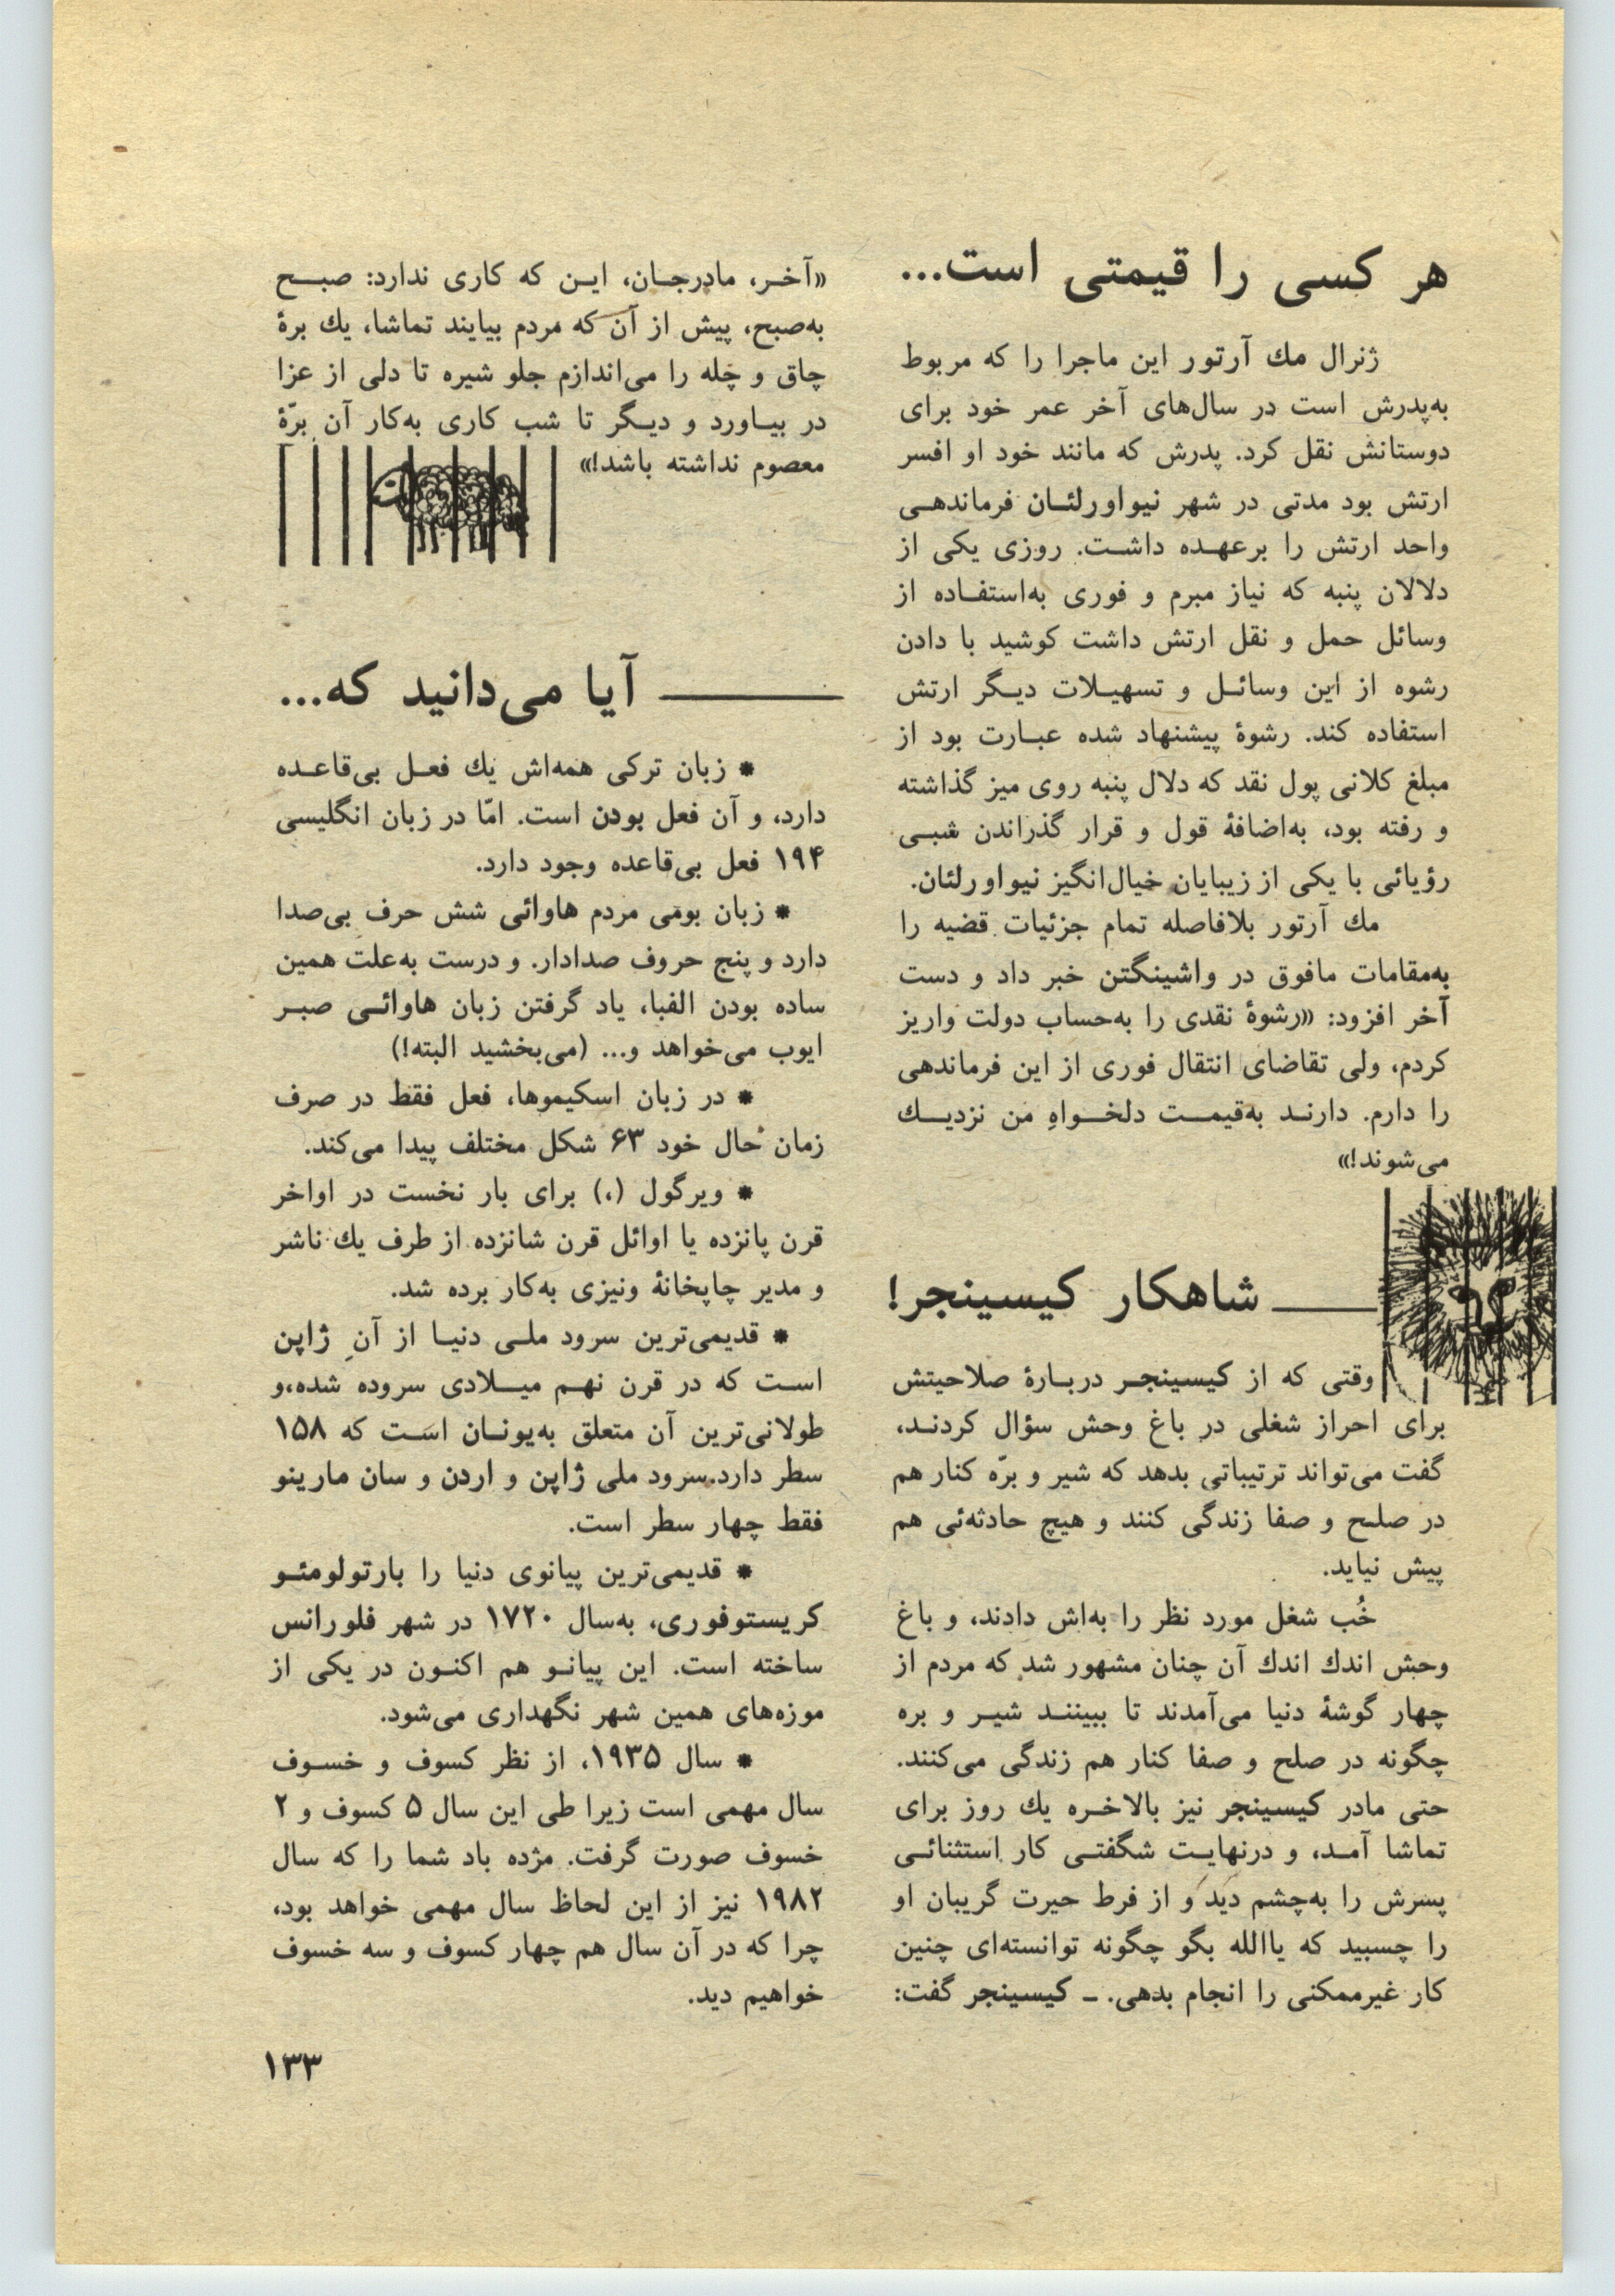 هر کسی را قیمتی است...
ژنرال مك آرتور این ماجرا را که مربوط
به‌پدرش است در سال‌های آخر عمر خود برای
دوستانش نقل کرد. پدرش که مانند خود او افسر
ارتش بود مدتی در شهر نیواورلئان فرماندهی
واحد ارتش را برعهده داشت. روزی یکی از
دلالان پنبه که نیاز مبرم و فوری به‌استفاده از
وسائل حمل و نقل ارتش داشت کوشید با دادن
رشوه از این وسائل و تسهیلات دیگر ارتش
استفاده کند. رشوهٔ پیشنهاد شده عبارت بود از
مبلغ کلانی پول نقد که دلال پنبه روی میز گذاشته
و رفته بود، به‌اضافهٔ قول و قرار گذراندن شبی
رؤیائی با یکی از زیبایان خیال‌انگیز نیواورلئان.
مك آرتور بلافاصله تمام جزئیات قضیه را
به‌مقامات مافوق در واشینگتن خبر داد و دست
آخر افزود: «رشوهٔ نقدی را به‌حساب دولت واریز
کردم، ولی تقاضای انتقال فوری از این فرماندهی
را دارم. دارند به‌قیمت دلخواهِ من نزدیك
می‌شوند!»
شاهکار کیسینجر!
وقتی که از کیسینجر دربارهٔ صلاحیتش
برای احراز شغلی در باغ وحش سؤال کردند،
گفت می‌تواند ترتیباتی بدهد که شیر و برّه کنار هم
در صلح و صفا زندگی کنند و هیچ حادثه‌ئی هم
پیش نیاید.
خُب شغل مورد نظر را به‌اش دادند، و باغ
وحش اندك اندك آن چنان مشهور شد که مردم از
چهار گوشهٔ دنیا می‌آمدند تا ببینند شیر و بره
چگونه در صلح و صفا کنار هم زندگی می‌کنند.
حتی مادر کیسینجر نیز بالاخره یك روز برای
تماشا آمد، و درنهایت شگفتی کار استثنائی
پسرش را به‌چشم دید و از فرط حیرت گریبان او
را چسبید که یاالله بگو چگونه توانسته‌ای چنین
کار غیرممکنی را انجام بدهی. ـ کیسینجر گفت:
«آخر، مادرجان، این که کاری ندارد: صبح
به‌صبح، پیش از آن که مردم بیایند تماشا، یك برهٔ
چاق و چَله را می‌اندازم جلو شیره تا دلی از عزا
در بیاورد و دیگر تا شب کاری به‌کار آن برّهٔ
معصوم نداشته باشد!»
آیا می‌دانید که...
* زبان ترکی همه‌اش یك فعل بی‌قاعده
دارد، و آن فعل بودن است. امّا در زبان انگلیسی
۱۹۴ فعل بی‌قاعده وجود دارد.
* زبان بومی مردم هاوائی شش حرف بی‌صدا
دارد و پنج حروف صدادار. و درست به‌علت همین
ساده بودن الفبا، یاد گرفتن زبان هاوائی صبر
ایوب می‌خواهد و... (می‌بخشید البته!)
* در زبان اسکیموها، فعل فقط در صرف
زمان حال خود ۶۳ شکل مختلف پیدا می‌کند.
* ویرگول (،) برای بار نخست در اواخر
قرن پانزده یا اوائل قرن شانزده از طرف یك ناشر
و مدیر چاپخانهٔ ونیزی به‌کار برده شد.
* قدیمی‌ترین سرود ملی دنیا از آنِ ژاپن
است که در قرن نهم میلادی سروده شده،و
طولانی‌ترین آن متعلق به‌یونان است که ۱۵۸
سطر دارد.سرود ملی ژاپن و اردن و سان مارینو
فقط چهار سطر است.
* قدیمی‌ترین پیانوی دنیا را بارتولومئو
کریستوفوری، به‌سال ۱۷۲۰ در شهر فلورانس
ساخته است. این پیانو هم اکنون در یکی از
موزه‌های همین شهر نگهداری می‌شود.
* سال ۱۹۳۵، از نظر کسوف و خسوف
سال مهمی است زیرا طی این سال ۵ کسوف و ۲
خسوف صورت گرفت. مژده باد شما را که سال
۱۹۸۲ نیز از این لحاظ سال مهمی خواهد بود،
چرا که در آن سال هم چهار کسوف و سه خسوف
خواهیم دید.
۱۳۳